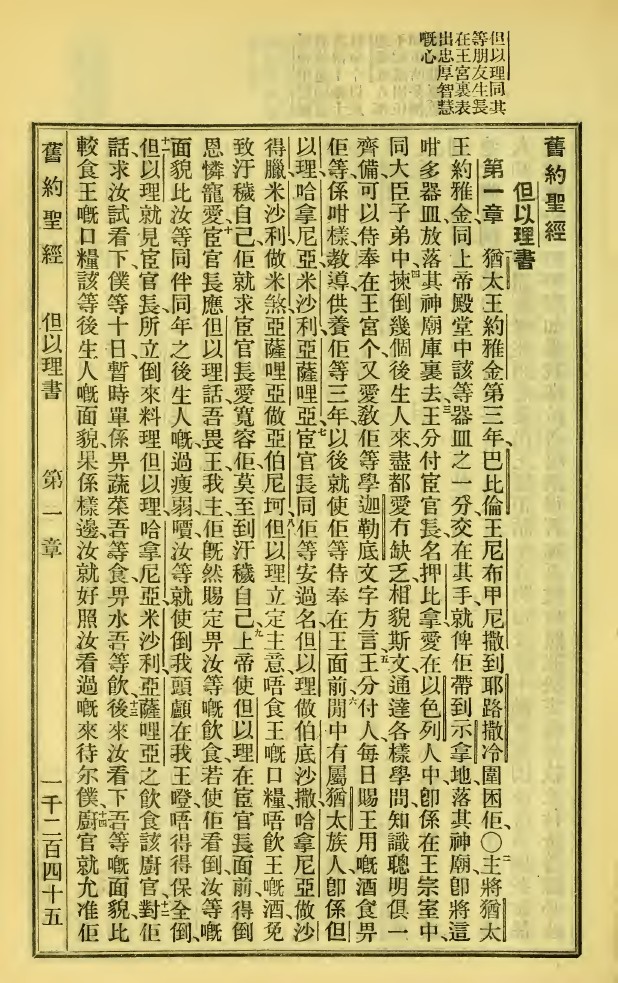 但以理同其
等朋友生長
在王宮裏表
出忠厚智慧
嘅心
舊約聖經
但以理書
第一章 猶太王約雅金第三年、巴比倫王尼布甲尼撒到耶路撒冷圍困佢、〇二主將猶太
王約雅金、同上帝殿堂中該等器皿之一分、交在其手、就俾佢帶到示拿地、落其神廟、卽將這
咁多器皿放落其神廟庫裏去、三王分付宦官長、名押比拿、愛在以色列人中、卽係在王宗室中、
同大臣子弟中、揀倒幾個後生人來、四盡都愛冇缺乏、相貌斯文、通達各樣學問、知識聰明俱一
齊備、可以侍奉在王宮个、又愛敎佢等學迦勒底文字方言、五王分付人每日賜王用嘅酒食畀
佢等、係咁樣教導供養佢等三年、以後就使佢等侍奉在王面前、六閒中有屬猶太族人、卽係但
以理、哈拿尼亞、米沙利、亞薩哩亞、七宦官長同佢等安過名、但以理做伯底沙撒、哈拿尼亞做沙
得臘、米沙利做米煞、亞薩哩亞做亞伯尼坷、八但以理立定主意、唔食王嘅口糧、唔飲王嘅酒、免
致汙穢自己、佢就求宦官長、愛寬容佢、莫至到汙穢自己、九上帝使但以理在宦官長面前得倒
恩憐寵愛、十宦官長應但以理話、吾畏王我主、佢旣然賜定畀汝等嘅飲食、若使佢看倒汝等嘅
面貌、比汝等同伴同年之後生人嘅過瘦弱嚽、汝等就使倒我頭顱在我王噔唔得得保全倒、
十一但以理就見宦官長、所立倒來料理但以理、哈拿尼亞、米沙利、亞薩哩亞之飲食該廚官、對佢
話、十二求汝試看下僕等十日、暫時單係畀蔬菜吾等食、畀水吾等飲、十三後來汝看下吾等嘅面貌、比
較食王嘅口糧該等後生人嘅面貌、果係樣邊、汝就好照汝看過嘅來待尔僕、十四廚官就允准佢
舊約聖經 但以理書 第一章 一千二百四十五